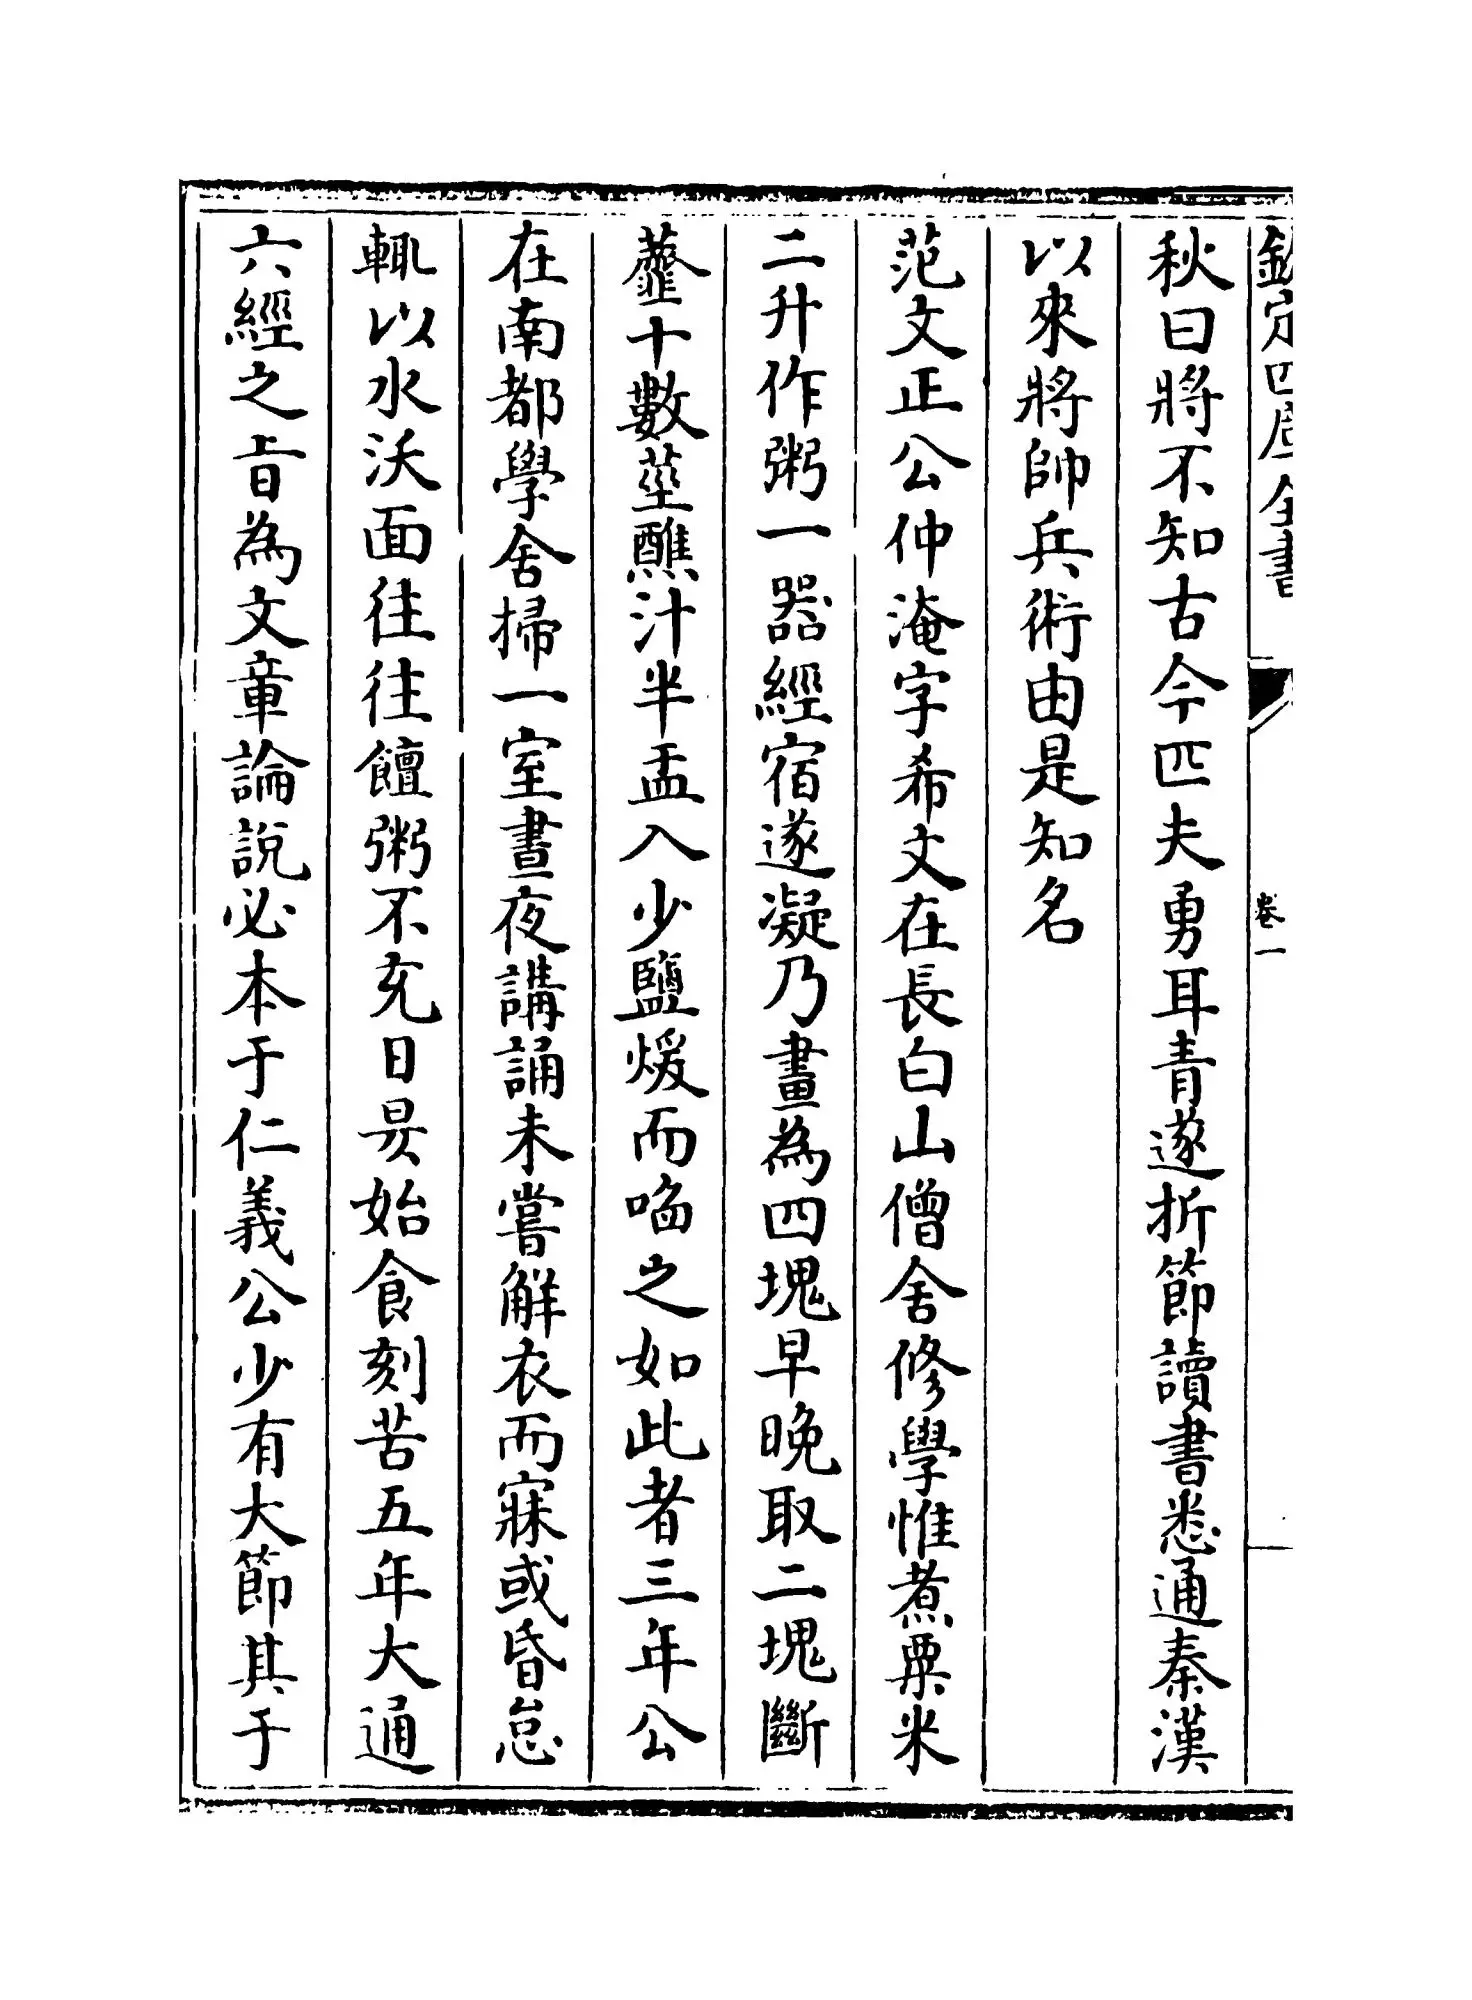 欽定四庫全書
卷一
秋曰將不知古今匹夫勇耳青遂折節讀書悉通秦漢
以來將帥兵術由是知名
范文正公仲淹字希文在長白山僧舍修學惟煮粟米
二升作粥一器經宿遂凝乃畫為四塊早晚取二塊斷
虀十數莖醮汁半盂入少鹽煖而啗之如此者三年公
在南都學舍掃一室晝夜講誦未嘗解衣而寐或昏怠
輒以水沃面往往饘粥不充日昃始食刻苦五年大通
六經之旨為文章論說必本于仁義公少有大節其于